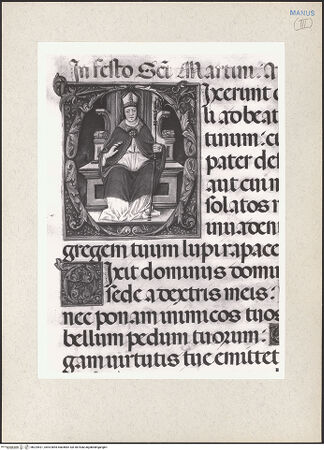 MANUS
III
In festo Sci Martini. A
ixerunt
li ad beat
tinum: cu
pater de
aut cui n
solatos
gregem tuum lupi rapace
Dixit dominus domi
sede a dextris meis:
nec ponam inimicos tuos
bellum pedum tuorum:
gam virtutis tue emittet